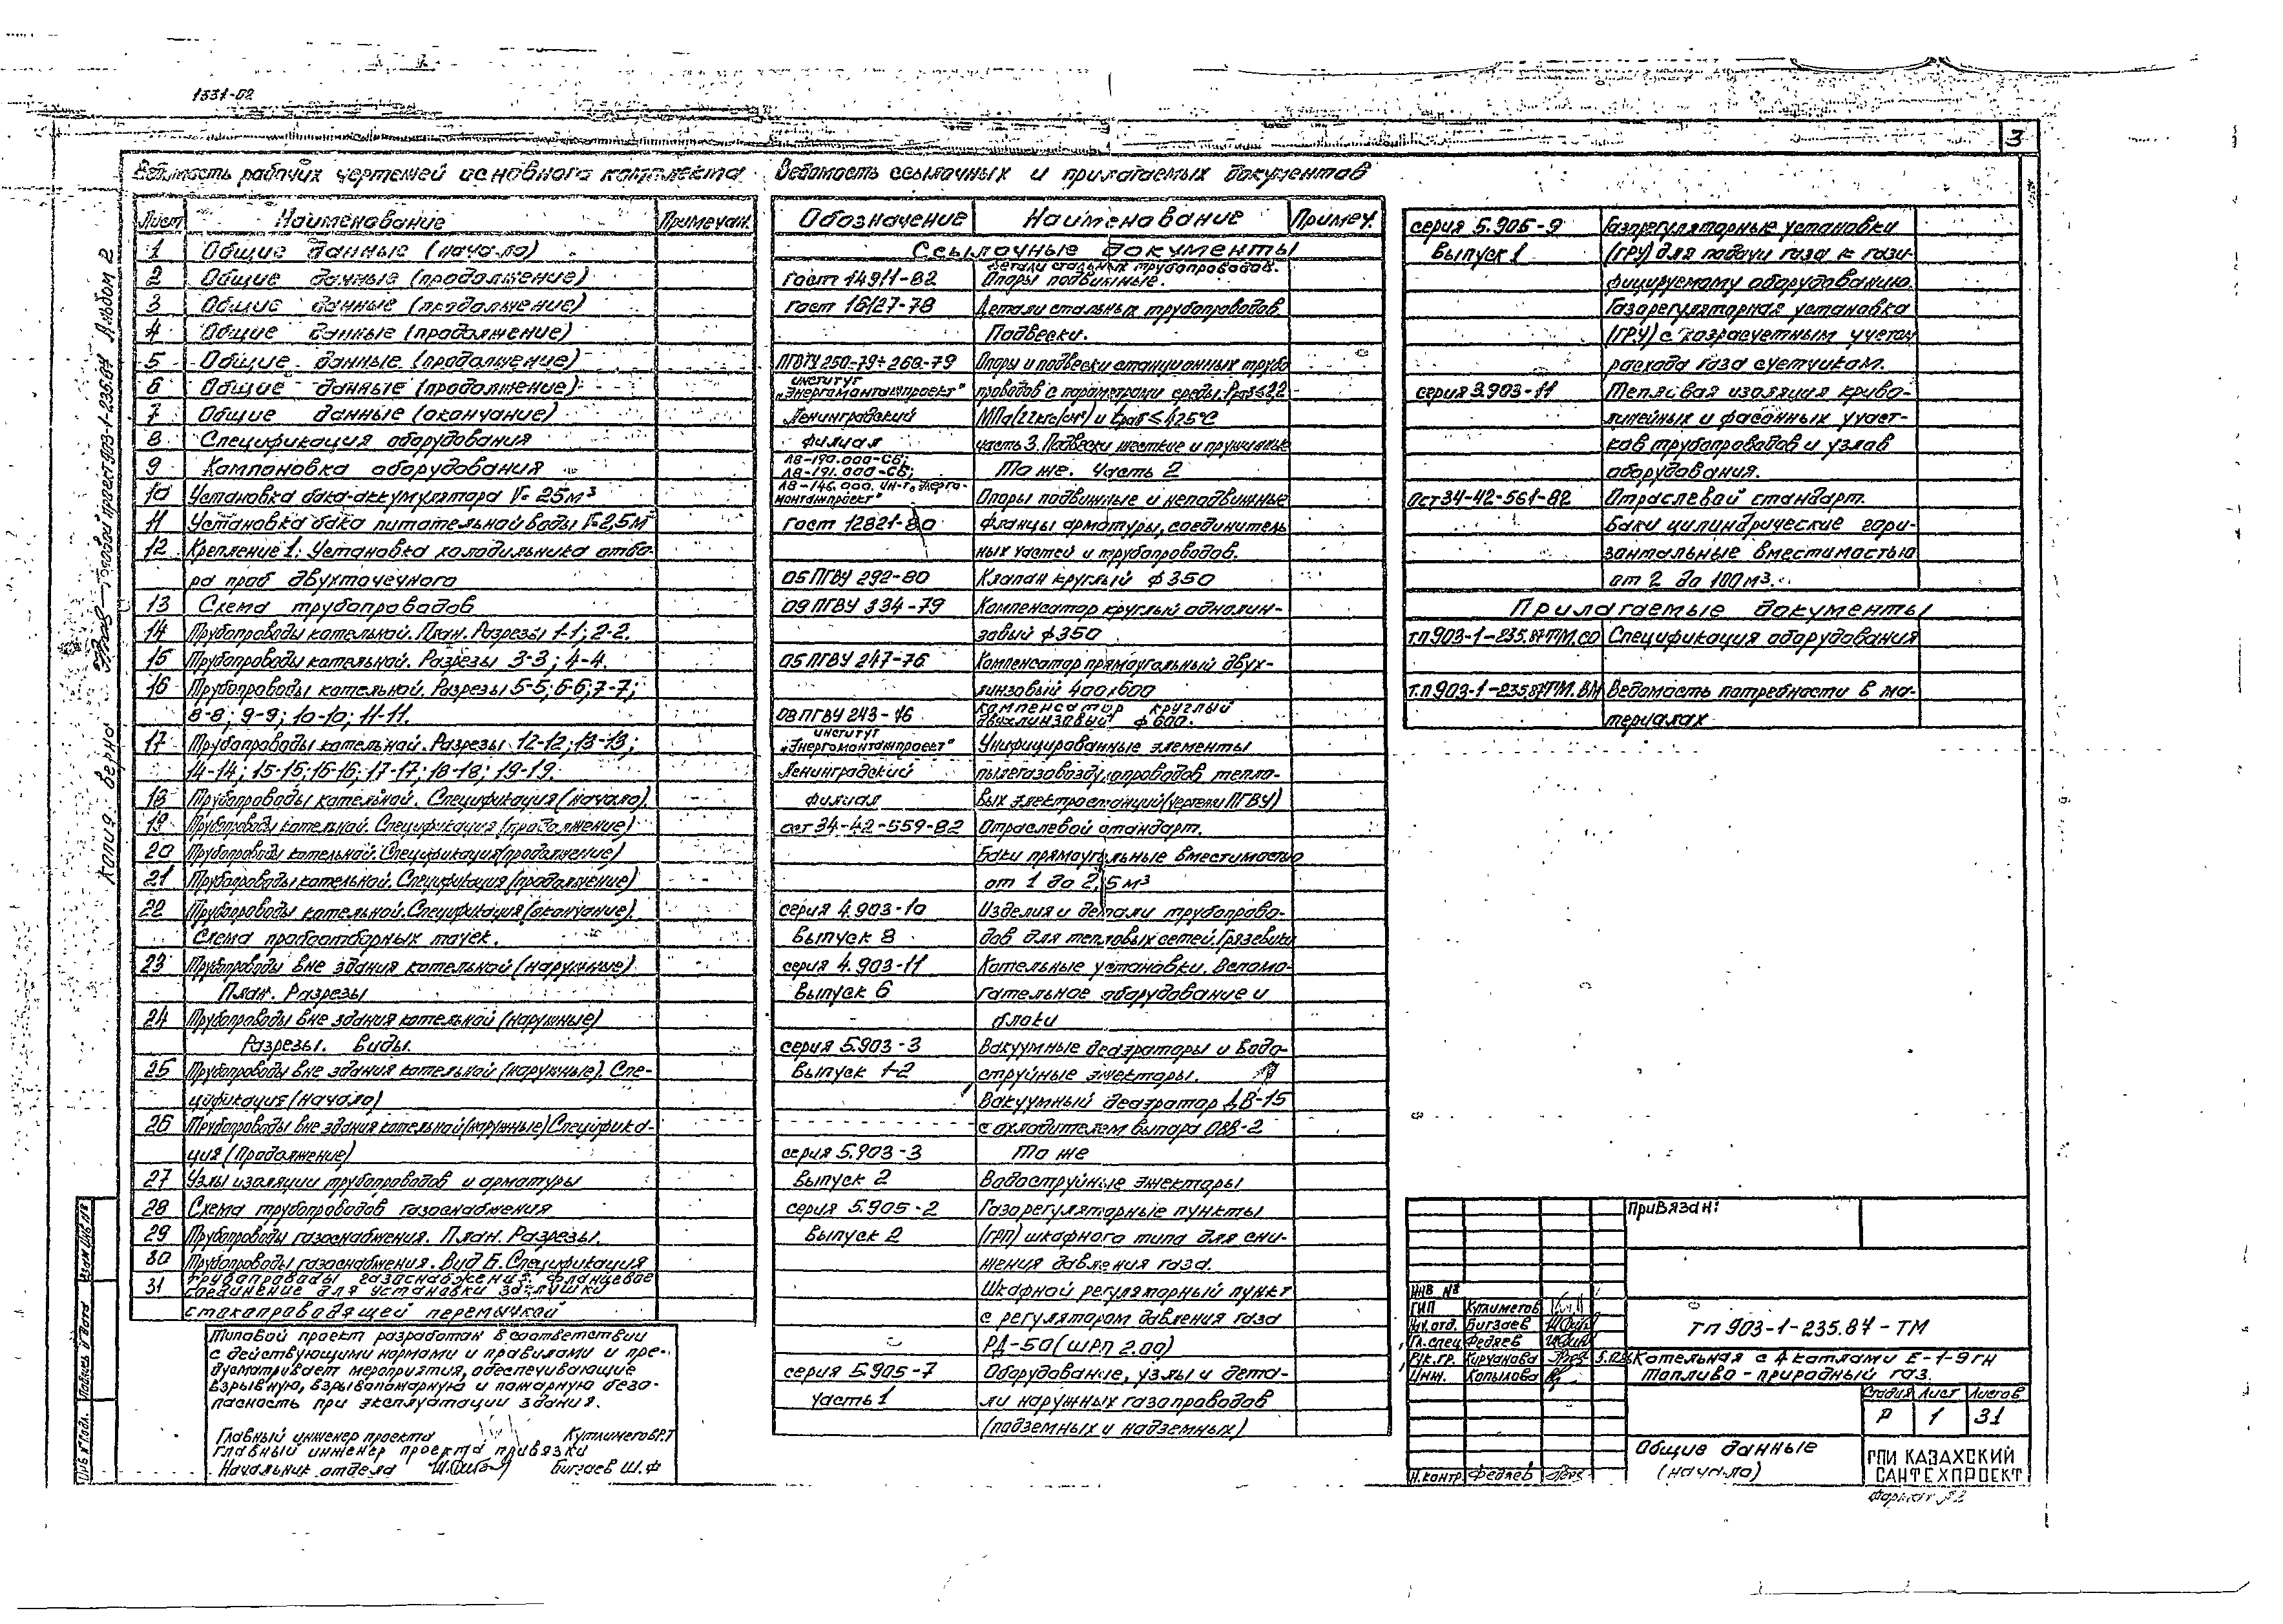 1331-02
3
Ведомость рабочих чертежей основного комплекта
Лист Наименование Примечан.
1 Общие данные (начало)
2 Общие данные (продолжение)
3 Общие данные (продолжение)
4 Общие данные (продолжение)
5 Общие данные (продолжение)
6 Общие данные (продолжение)
7 Общие данные (окончание)
8 Спецификация оборудования
9 Компановка оборудования
10 Установка бака-аккумулятора V=25м³
11 Установка бака питательной воды V=2,5м³
12 Крепление 1. Установка холодильника отбо-
ра проб двухточечного
13 Схема трубопроводов
14 Трубопроводы котельной. План. Разрезы 1-1; 2-2.
15 Трубопроводы котельной. Разрезы 3-3; 4-4.
16 Трубопроводы котельной. Разрезы 5-5; 6-6; 7-7;
8-8; 9-9; 10-10; 11-11.
17 Трубопроводы котельной. Разрезы 12-12; 13-13;
14-14; 15-15; 16-16; 17-17; 18-18; 19-19.
18 Трубопроводы котельной. Спецификация (начало).
19 Трубопроводы котельной. Спецификация (продолжение)
20 Трубопроводы котельной. Спецификация (продолжение)
21 Трубопроводы котельной. Спецификация (продолжение)
22 Трубопроводы котельной. Спецификация (окончание).
Схема пробоотборных точек.
23 Трубопроводы вне здания котельной (наружные)
План. Разрезы
24 Трубопроводы вне здания котельной (наружные)
Разрезы. Виды.
25 Трубопроводы вне здания котельной (наружные). Спе-
цификация (начало)
26 Трубопроводы вне здания котельной (наружные) Специфика-
ция (продолжение)
27 Узлы изоляции трубопроводов и арматуры
28 Схема трубопроводов газоснабжения
29 Трубопроводы газоснабжения. План. Разрезы.
30 Трубопроводы газоснабжения. Вид Б. Спецификация
31 Трубопроводы газоснабжения. Фланцевое
соединение для установки заглушки
с токопроводящей перемычкой
Типовой проект разработан в соответствии
с действующими нормами и правилами и пре-
дусматривает мероприятия, обеспечивающие
взрывную, взрывопожарную и пожарную безо-
пасность при эксплуатации здания.
Главный инженер проекта Кутлиметов Р.Т
Главный инженер проекта привязки
Начальник отдела Бигзаев Ш.Ф
Ведомость ссылочных и прилагаемых документов
Обозначение Наименование Примеч.
Ссылочные документы
Гост 14911-82 Детали стальных трубопроводов.
Опоры подвижные.
Гост 16127-78 Детали стальных трубопроводов
Подвески.
ПГВТУ 250-79÷268-79 Опоры и подвески станционных трубо
институт „Энергомонтажпроект" проводов с параметрами среды Рраб≤2,2
Ленинградский МПа (22кгс/см²) и tраб ≤ 425°С
филиал часть 3. Подвески жесткие и пружинные
Л8-190.000-СБ;
Л8-191.000-СБ; То же. Часть 2
Л8-146.000. ин-т „Энерго-
монтажпроект" Опоры подвижные и неподвижные
Гост 12821-80 Фланцы арматуры, соединитель
ных частей и трубопроводов.
05 ПГВУ 292-80 Клапан круглый ф 350
09 ПГВУ 334-79 Компенсатор круглый однолин-
зовый ф 350
05 ПГВУ 247-76 Компенсатор прямоугольный двух-
линзовый 400х600
08 ПГВУ 243-76 Компенсатор круглый
двухлинзовый ф 600.
институт „Энергомонтажпроект" Унифицированные элементы
Ленинградский пылегазовоздухопроводов тепло-
филиал вых электростанций (чертежи ПГВУ)
ост 34-42-559-82 Отраслевой стандарт.
Баки прямоугольные вместимостью
от 1 до 2,5 м³
серия 4.903-10 Изделия и детали трубопрово-
Выпуск 8 дов для тепловых сетей. Грязевики
серия 4.903-11 Котельные установки. Вспомо-
Выпуск 6 гательное оборудование и
блоки
серия 5.903-3 Вакуумные деаэраторы и водо-
Выпуск 1-2 струйные эжекторы.
Вакуумный деаэратор ДВ-15
с охладителем выпара ОВВ-2
серия 5.903-3 То же
Выпуск 2 Водоструйные эжекторы
серия 5.905-2 Газорегуляторные пункты
Выпуск 2 (ГРП) шкафного типа для сни-
жения давления газа.
Шкафной регуляторный пункт
с регулятором давления газа
РД-50 (ШРП 2.00)
серия 5.905-7 Оборудование, узлы и дета-
часть 1 ли наружных газопроводов
(подземных и надземных)
серия 5.905-9 Газорегуляторные установки
Выпуск 1 (ГРУ) для подачи газа к гази-
фицируемому оборудованию.
Газорегуляторная установка
(ГРУ) с хозрасчетным учетом
расхода газа счетчиком.
серия 3.903-11 Тепловая изоляция криво-
линейных и фасонных участ-
ков трубопроводов и узлов
оборудования.
ост 34-42-561-82 Отраслевой стандарт.
Баки цилиндрические гори-
зонтальные вместимостью
от 2 до 100 м³.
Прилагаемые документы
т.п 903-1-235.87 ТМ.СО Спецификация оборудования
т.п 903-1-235.87 ТМ.ВМ Ведомость потребности в ма-
териалах
Привязан:
Инв №
ГИП Кутлиметов
Нач.отд. Бигзаев
Гл.спец Федяев
Рук.гр. Кирчанова
Инж. Копылова
Н.контр Федяев
ТП 903-1-235.87-ТМ
Котельная с 4 котлами Е-1-9гн
Топливо - природный газ.
Стадия Лист Листов
Р 1 31
Общие данные
(начало)
ГПИ КАЗАХСКИЙ
САНТЕХПРОЕКТ
Формат А2
Копия верна
Типовой проект 903-1-235.87 Альбом 2
Инв № подл. Подпись и дата Взам. инв №